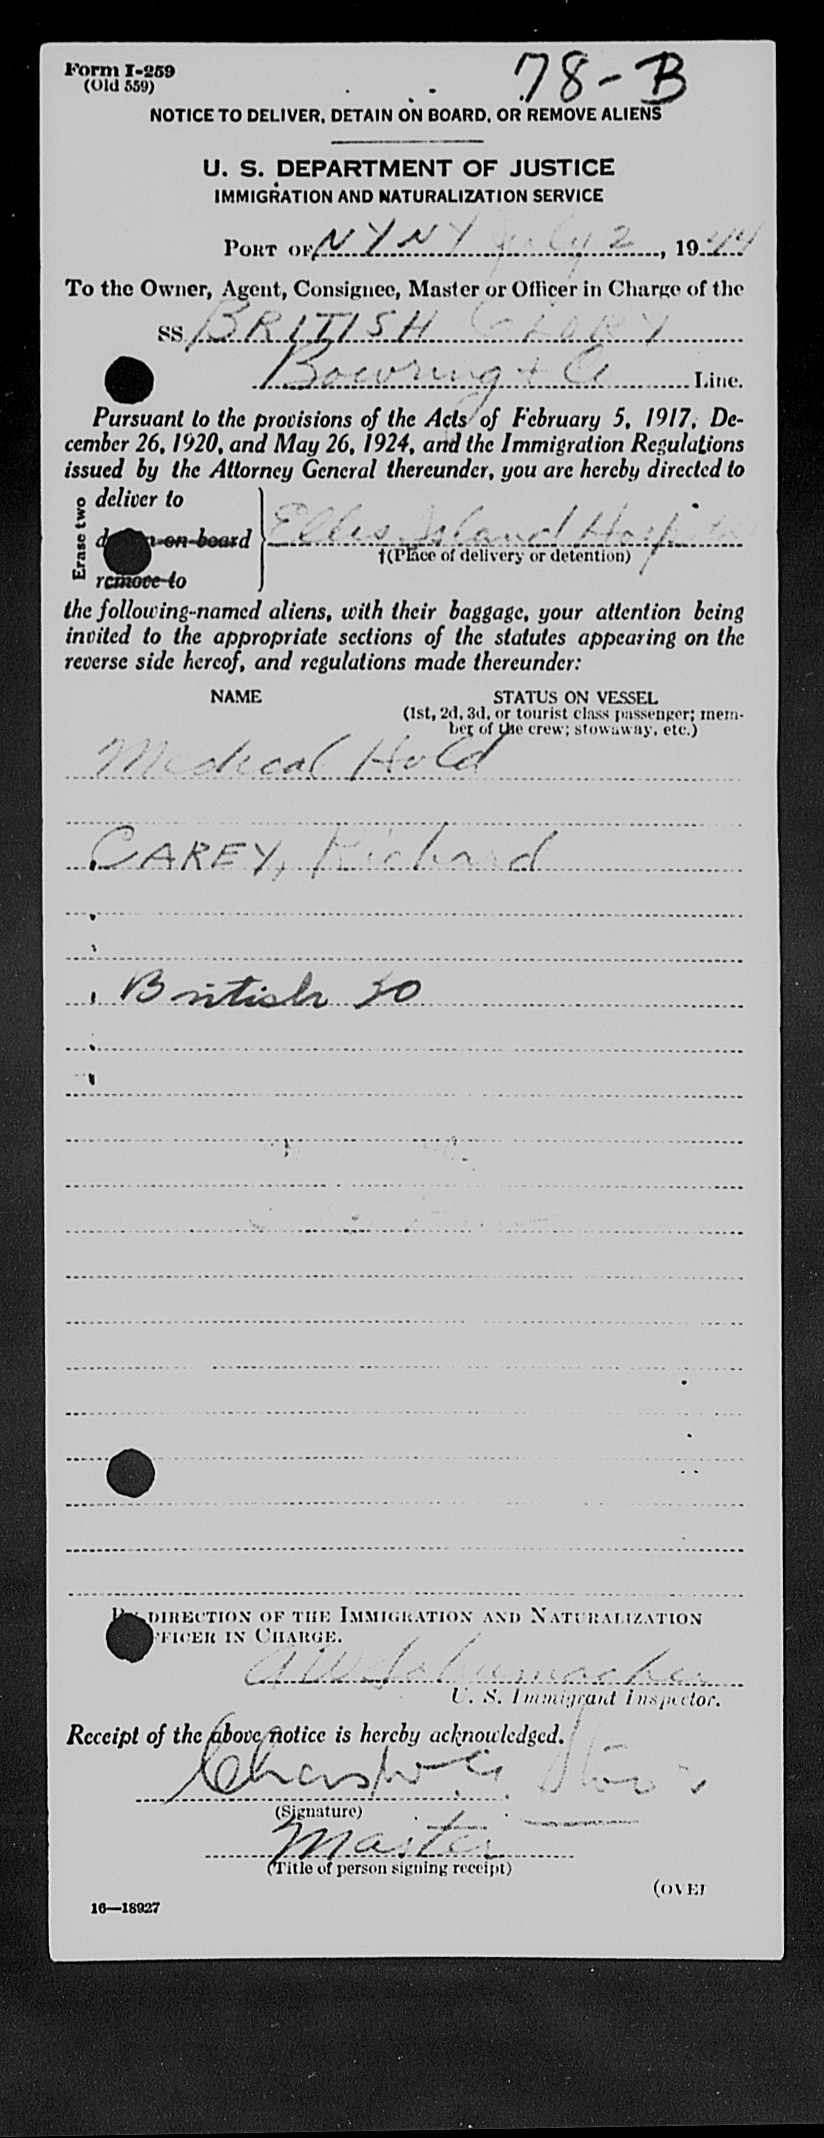 Form I-259
(Old 559)
78-B
NOTICE TO DELIVER, DETAIN ON BOARD, OR REMOVE ALIENS
U. S. DEPARTMENT OF JUSTICE
IMMIGRATION AND NATURALIZATION SERVICE
PORT OF NY NY July 2, 1944
To the Owner, Agent, Consignee, Master or Officer in Charge of the
SS BRITISH GLORY
Bowring & Co Line.
Pursuant to the provisions of the Acts of February 5, 1917, De-
cember 26, 1920, and May 26, 1924, and the Immigration Regulations
issued by the Attorney General thereunder, you are hereby directed to
Erase two
deliver to
on board
remove to
Ellis Island Hospital
†(Place of delivery or detention)
the following-named aliens, with their baggage, your attention being
invited to the appropriate sections of the statutes appearing on the
reverse side hereof, and regulations made thereunder:
NAME STATUS ON VESSEL
(1st, 2d, 3d, or tourist class passenger; mem-
ber of the crew; stowaway, etc.)
Medical Hold
CAREY, Richard
British 20
BY DIRECTION OF THE IMMIGRATION AND NATURALIZATION
OFFICER IN CHARGE.
A W Schumacher
U. S. Immigrant Inspector.
Receipt of the above notice is hereby acknowledged.
(Signature)
Master
(Title of person signing receipt)
(OVER
16—18927